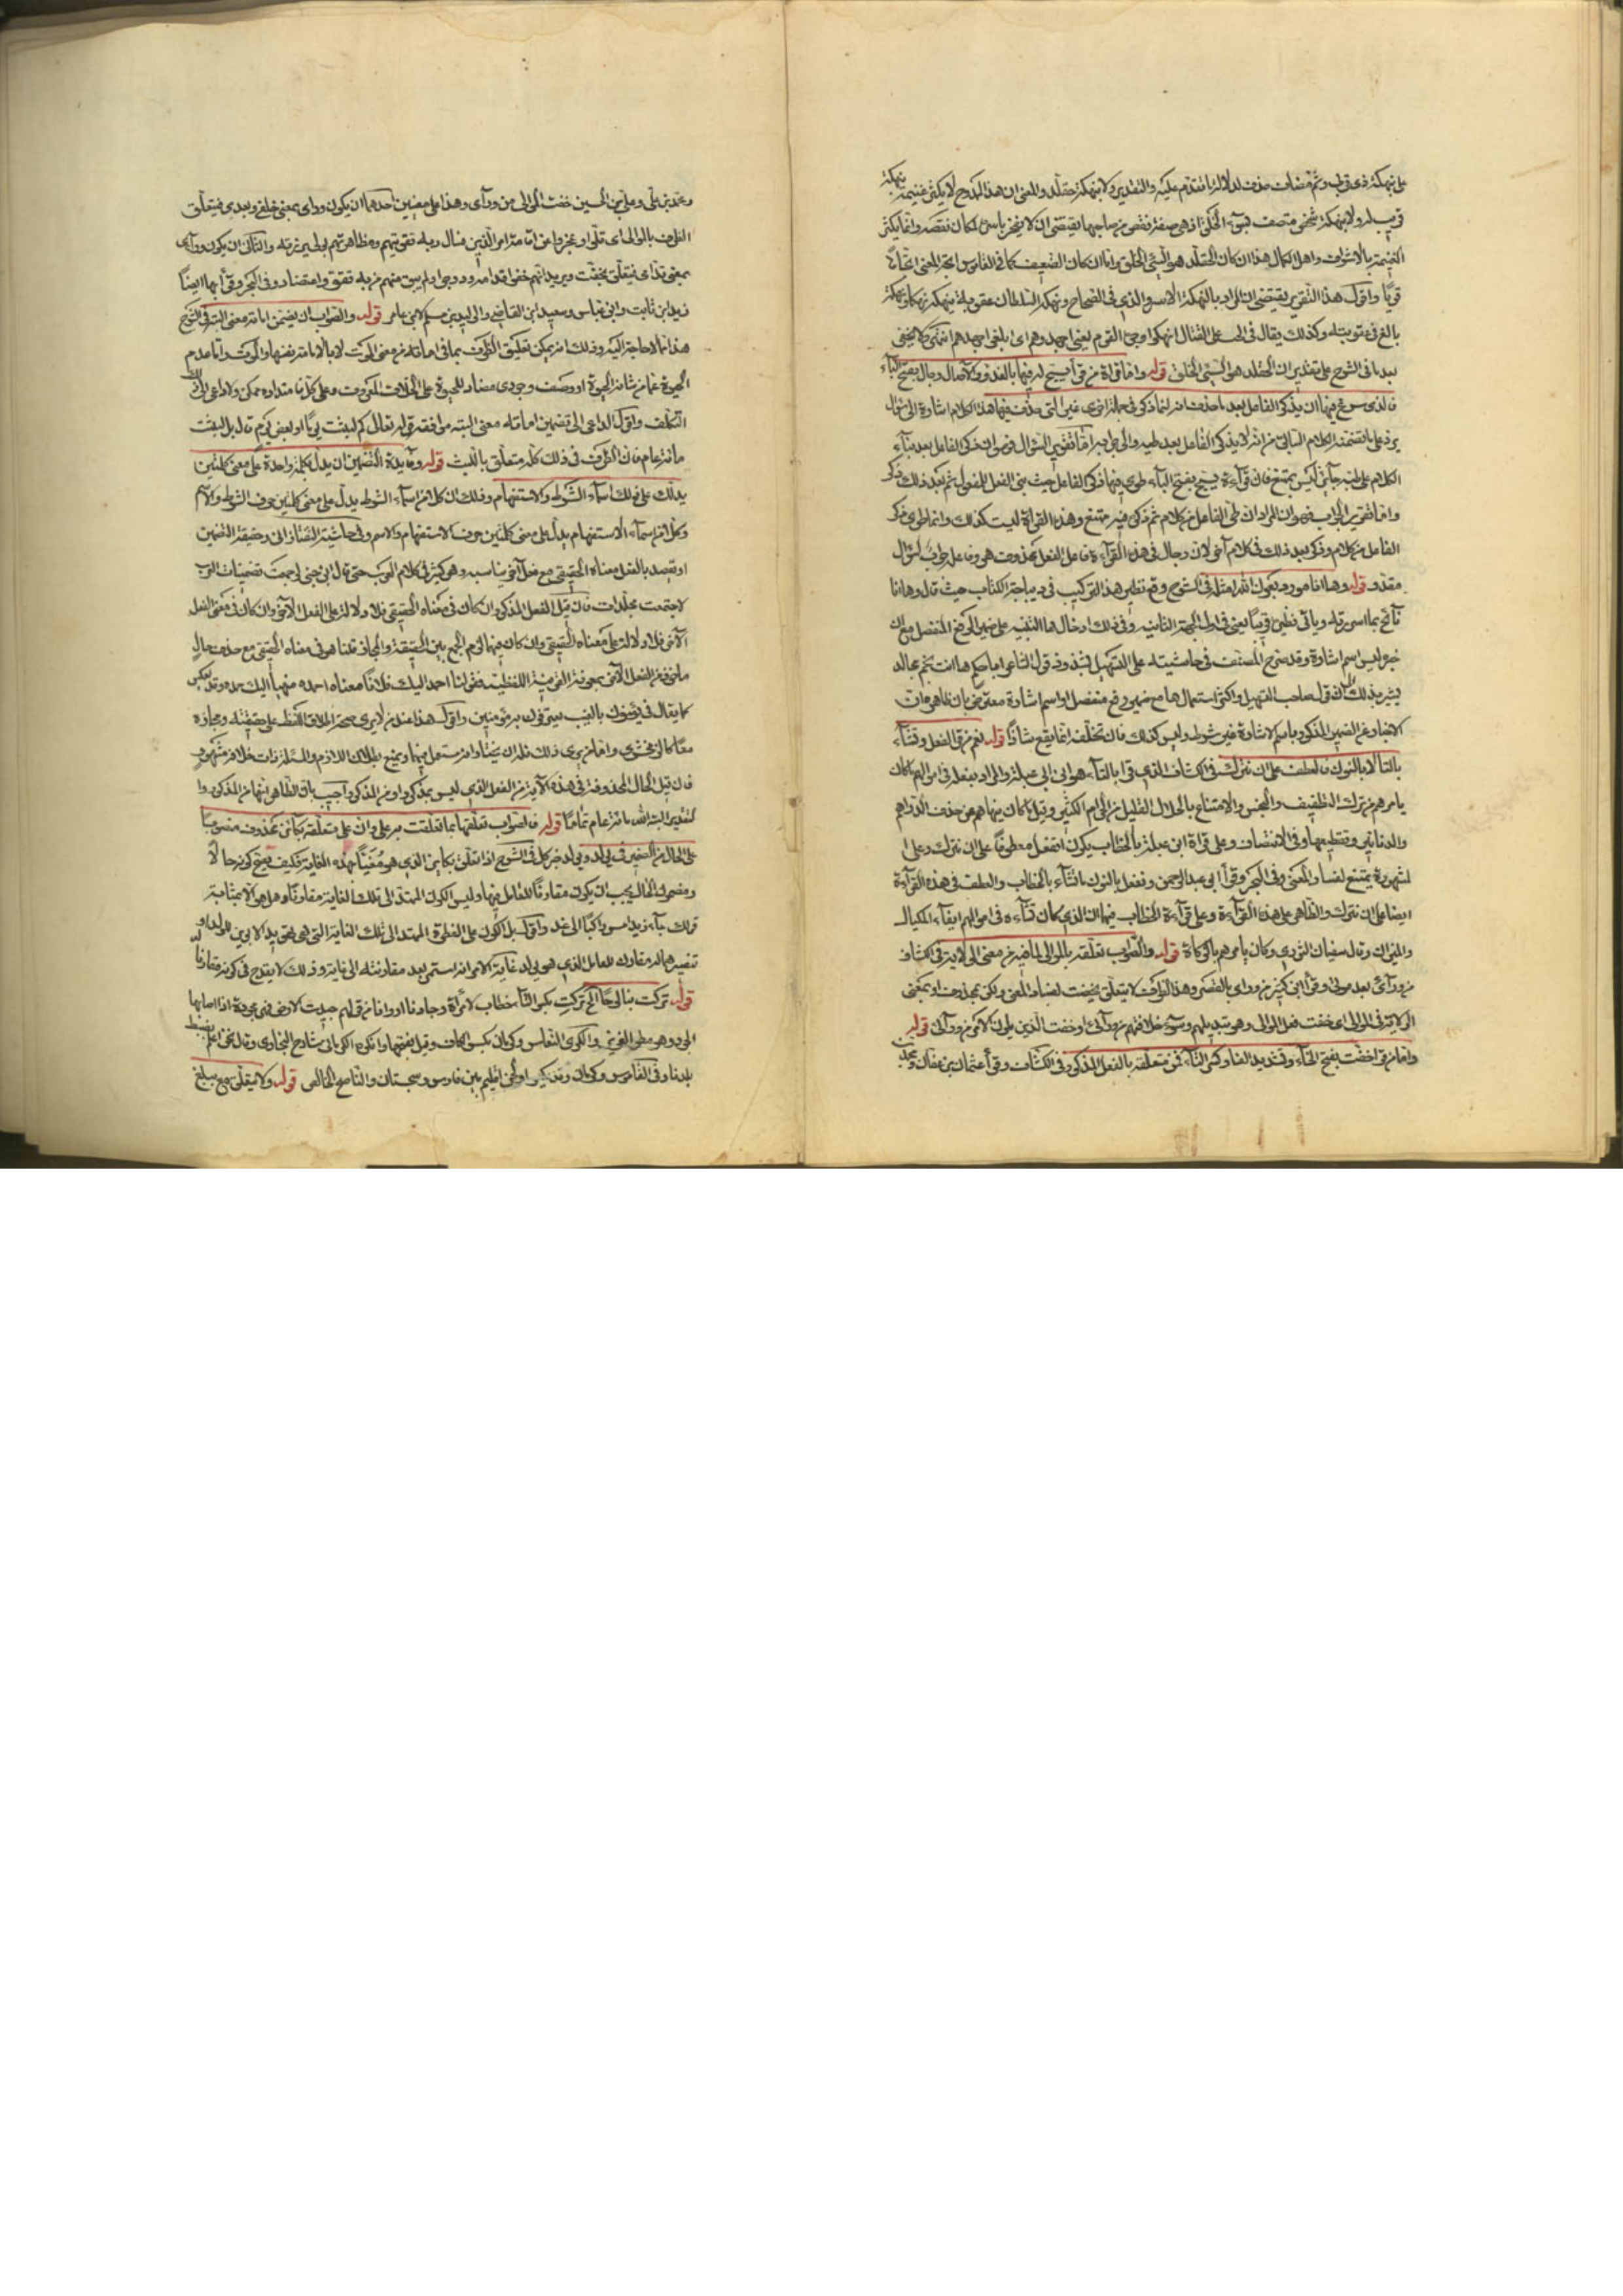 على نهكة ذي قربى وثم مضاف حذف لدلالة ما تقدم عليه والتقدير ولا بنهكة حقلد والمعنى ان هذا الممدوح لا يكثر غنيمة بنهكة
قريب له ولا بنهكة شخص متصف بسوء الخلق اذ هي صفة نقص من صاحبها يقتضي ان لا
الغنيمة بالاشراف واهل الكمال هذا ان كان الحقلد هو السيئ الخلق واما ان كان الضعيف كما في القاموس اتجه المعنى اتجاها
قويا واقول هذا التقرير يقتضي ان المراد بالنهكة الاسر والذي في الصحاح ونهكه السلطان عقوبة ينهكه نهكا ونهكة
بالغ في عقوبته وكذلك يقال في الحث على القتال انهكوا وجوه القوم يعني اجهدوهم اي ابلغوا جهدهم انتهى ولا يخفى
بعد ما في الشرح على تقدير ان الحقلد هو السيئ الخلق قوله واما قراءة من قرأ يسبح له فيها بالغدو والآصال رجال بفتح الباء
فالذي سوغ فيها ان يذكر الفاعل بعد ما حذف انه انما ذكر في جملة اخرى غير التي حذف فيها هذا الكلام اشارة الى سؤال
يرد على ما تضمنه الكلام السابق من انه لا يذكر الفاعل بعد طيه والى جوابه اما تقرير السؤال فهو ان ذكر الفاعل بعد بناء
الكلام على خبر جائز ليس بممتنع فان قراءة يسبح بفتح الباء طوي فيها ذكر الفاعل حيث بني الفعل للمفعول ثم بعد ذلك ذكر
واما تقرير الجواب فهو ان المراد ان طي الفاعل من كلام ثم ذكره فيه ممتنع وهذه القراءة ليست كذلك وانما طوي ذكر
الفاعل من كلام وذكر بعد ذلك في كلام آخر لان رجال في هذه القراءة فاعل لفعل محذوف هو وفاعله جواب لسؤال
مقدر قوله وها انا مورد بعون الله امثلة في الشرح وقع نظير هذا التركيب في ديباجة الكتاب حيث قال وها انا
بائح بما اسررته وياتي نظيره قريبا يعني في اول الجهة الثانية وفي ذلك ادخال ها التنبيه على ضمير الرفع المنفصل مع ان
خبره ليس اسم اشارة وقد صرح المصنف في حاشيته على التسهيل بشذوذ قول الشاعر
يشير بذلك الى ان قول صاحب التسهيل واكثر استعمال ها مع ضمير رفع منفصل او اسم اشارة معترض بان ظاهره ان
الاخبار عن الضمير المذكور باسم الاشارة غير شرط وليس كذلك فان تخلفه انما يقع شاذا قوله نعم من قرأ تفعل وتشاء
بالتاء لا بالنون فالعطف على ان نترك في الكشاف الذي قرأ بالتاء هو ابن ابي عبلة والمراد بفعله في اموالهم ما كان
يامرهم من ترك التطفيف والبخس والاقتناع بالحلال القليل من الحرام الكثير وقيل كان ينهاهم عن حذف الدراهم
والدنانير وتقطيعها وفي الانتصاف وعلى قراءة ابن عبلة بالخطاب يكون ان تفعل معطوفا على ان نترك وعلى
المشهورة يمتنع لفساد المعنى وفي البحر وقرأ ابو عبد الرحمن ونفعل بالنون ما تشاء بالخطاب والعطف في هذه القراءة
ايضا على ان نترك والظاهر على هذه القراءة وعلى قراءة الخطاب فيهما ان الذي كان تشاءه في اموالهم ايفاء المكيال
والميزان وقال سفيان الثوري وكان يامرهم بالزكاة قوله والصواب تعلقه بالموالي لما فيه من معنى الولاية في الكشاف
من ورائي بعد موتي وقرأ ابن كثير من وراي بالقصر وهذا الظرف لا يتعلق بخفت لفساد المعنى ولكن بمحذوف او بمعنى
الولاية في الموالي اي خفت فعل الموالي وهو تبديلهم وسوء خلافتهم من ورائي او خفت الذين يلون الامر من ورائي قوله
واما من قرأ خفت بفتح الخاء وتشديد الفاء وكسر التاء فمن متعلقة بالفعل المذكور في الكشاف وقرأ عثمان بن عفان ومحمد بن
ومحمد بن علي وعلي بن الحسين خفت الموالي من ورائي وهذا على معنيين احدهما ان يكون وراي بمعنى خلفي وبعدي فيتعلق
الظرف بالموالي اي قلوا وعجزوا عن اقامة امر الدين فسال ربه تقويتهم ومظاهرتهم بولي يرزقه والثاني ان يكون ورائي
بمعنى قدامي فيتعلق بخفت ويريد انهم خفوا قدامه ودرجوا ولم يبق منهم من به تقو واعتضاد وفي البحر وقرأ بها ايضا
زيد ابن ثابت وابن عباس وسعيد ابن العاصي والوليد بن مسلم لابن عامر قوله والصواب ان يضمن اماته معنى البثه في الشرح
هذا مما لا حاجة اليه وذلك انه يمكن تعليق الظرف بما في اماته من معنى الموت لا بالاماتة نفسها والموت واما عدم
الحيوة عما من شانه الحيوة او وصف وجودي مضاد للحيوة على الخلاف المعروف وعلى كل ما متداده ممكن ولا داعي الى ذلك
التكلف واقول الداعي الى تضمين اماته معنى البثه موافقة قوله تعالى كم لبثت قال لبثت يوما او بعض يوم قال بل لبثت
مائة عام فان الظرف في ذلك كله متعلق باللبث قوله وفائدة التضمين ان يدل بكلمة واحدة على معنى كلمتين
يدلك على ذلك اسماء الشرط والاستفهام وذلك ان كلا من اسماء الشرط يدل على معنى كلمتين حرف الشرط والاسم
وكلا من اسماء الاستفهام يدل على معنى كلمتين حرف الاستفهام والاسم وفي حاشية التفتازاني وحقيقة التضمين
ان يقصد بالفعل معناه الحقيقي مع فعل آخر يناسبه وهو كثير في كلام العرب حتى قال ابن جني لو جمعت تضمينات العرب
لاجتمعت مجلدات فان قيل الفعل المذكور ان كان في معناه الحقيقي فلا دلالة على الفعل الآخر وان كان في معنى الفعل
الآخر فلا دلالة على معناه الحقيقي وان كان فيهما لزم الجمع بين الحقيقة والمجاز قلنا هو في معناه الحقيقي مع حذف حال
ماخوذ من الفعل الآخر بمعونة القرينة اللفظية فقولنا احمد اليك فلانا معناه احمده منهيا اليك حمده وقد يعكس
كما يقال في يؤمنون بالغيب يعترفون به مؤمنين واقول هذا عند من لا يرى صحة اطلاق اللفظ على حقيقته ومجازه
معا كالزمخشري واما من يرى ذلك فله ان يختار انه مستعمل فيهما ويمنع بطلان اللازم والمسئلة ذات خلاف مشهور
فان قيل الحال المحذوفة في هذه الآية من الفعل الذي ليس بمذكور او من المذكور اجيب بان الظاهر انها من المذكور وا
لتقدير البثه الله مائة عام مماتا قوله فالصواب تعلقها بما تعلقت به على وان على متعلقة بكائن محذوف منصوب
على الحال من الضمير في يولد ويولد خبر كل في الشرح اذا تعلق بكاين الذي هو مغيا بهذه الغاية فكيف يصح كونه حالا
ومضمون الحال يجب ان يكون مقارنا للعامل فيها وليس الكون الممتد الى تلك الغاية مقارنا وهل هو الا بمثابة
قولك جاء زيد امس راكبا الى غد واقول بل الكون على الفطرة الممتد الى تلك الغاية التي هي تهويد الابوين للولد او
تنصيرهما له مقارن للعامل الذي هو يولد غاية الامر انه استمر بعد مقارنته الى غاية وذلك لا يقدح في كونه مقارنا له
قوله تركت بنا لوحا الخ تركت بكسر التاء خطاب لامرأة وجادنا
الجود وهو مطر الغزير والكرى النعاس وكرمان بكسر الكاف وقيل بفتحها وانكره الكرماني شارح البخاري وقال نحن اعلم بضبط
بلدنا وفي القاموس وكرمان وقد يكسر او لحن اقليم بين فارس وسجستان والناصح الخالص قوله ولا يتعلق مع بيبلغ